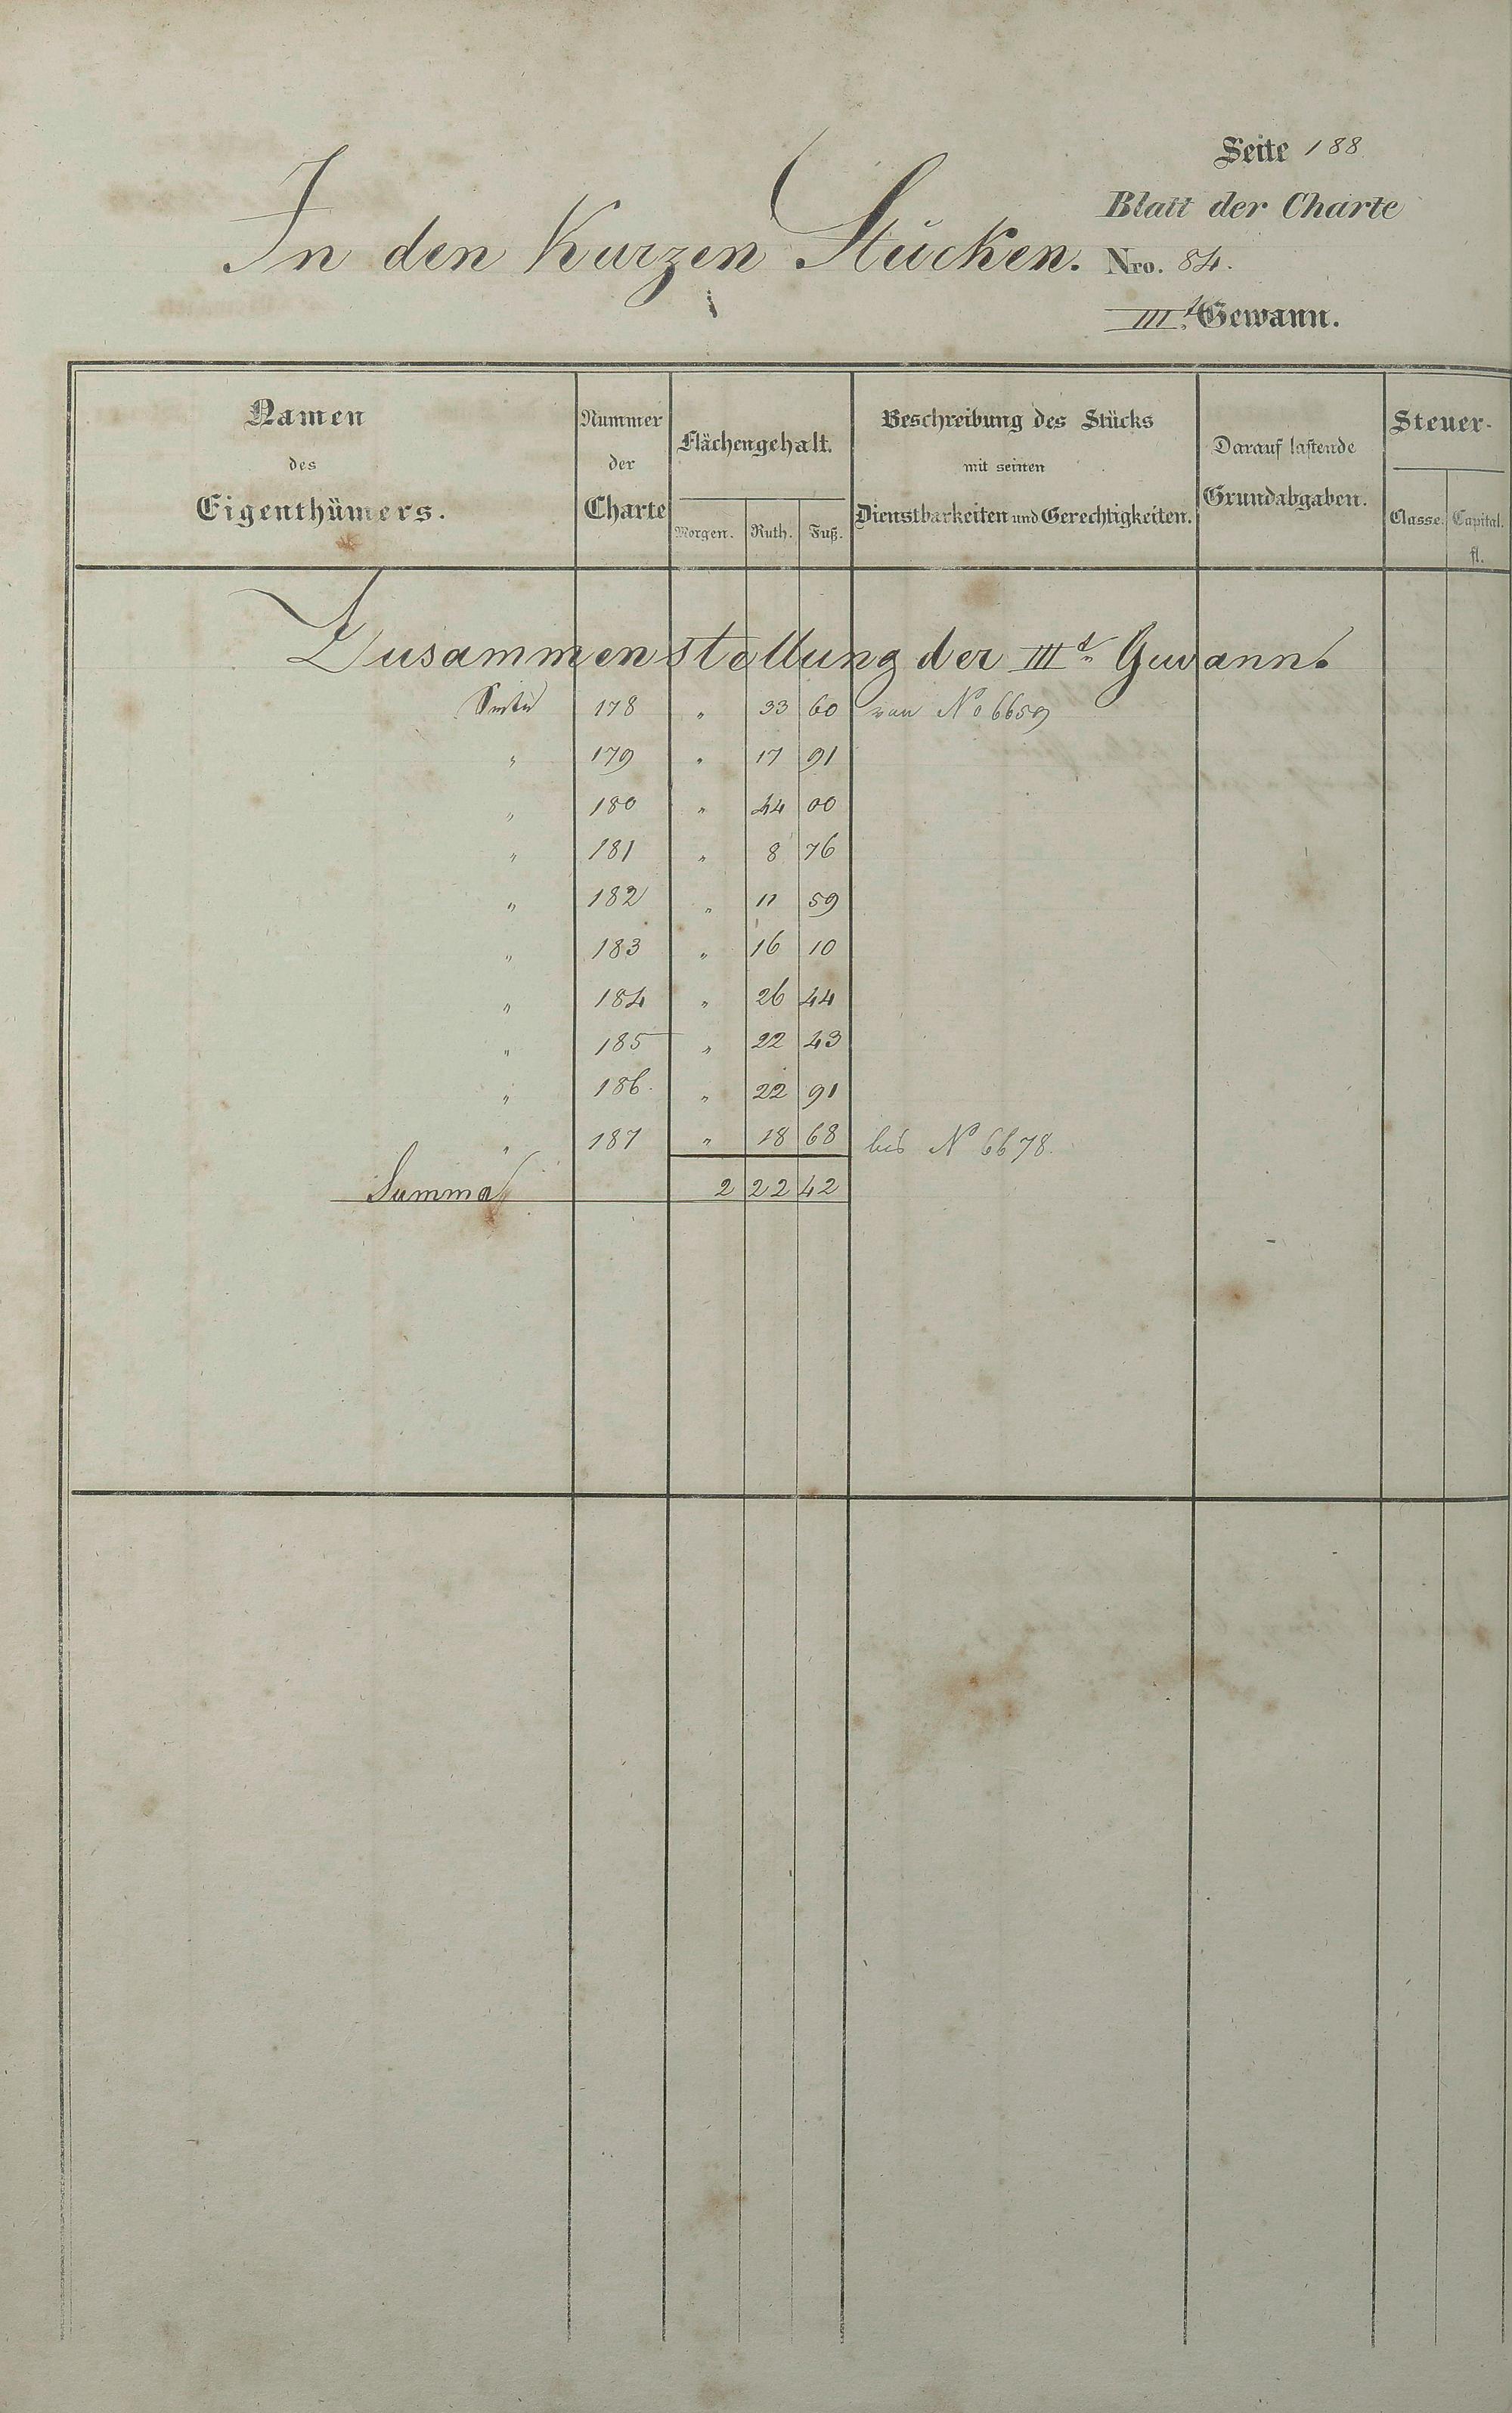 Seite 188
Blatt der Charte
In den Kurzen Stücken. Nro. 84.
IIIt. Gewann.
Namen des Eigenthümers. Nummer der Charte Flächengehalt. Morgen. Ruth. Fuß. Beschreibung des Stücks mit seinen Dienstbarkeiten und Gerechtigkeiten. Darauf lastende Grundabgaben. Steuer- Classe. Capital. fl.
Zusammenstellung der IIIt. Gewann.
Seite 178 " 33 60 von No 6659
" 179 " 17 91
" 180 " 44 00
" 181 " 8 76
" 182 " 11 59
" 183 " 16 10
" 184 " 26 44
" 185 " 22 43
" 186. " 22 91
" 187 " 18 68 bis No 6678.
Summa 2 22 42